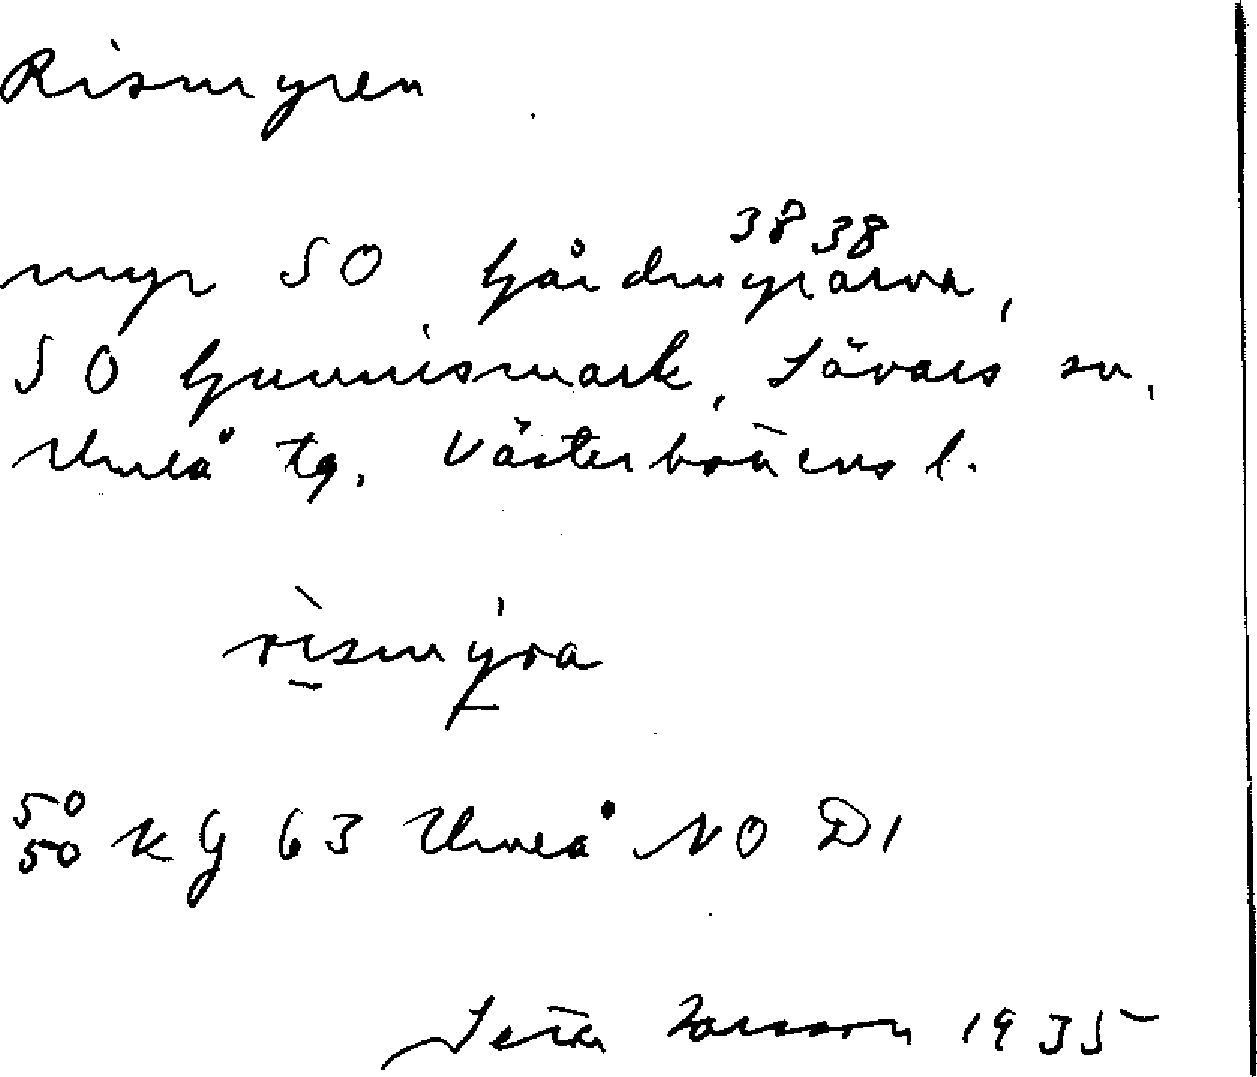 Rismyren
38 38
myr SO Gårdmyrarna,
SO Gunnismark, Sävars sn,
Umeå tg. Västerbottens l.
rismyra
50
50 KG 63 Umeå NO D1
Larsson 1935